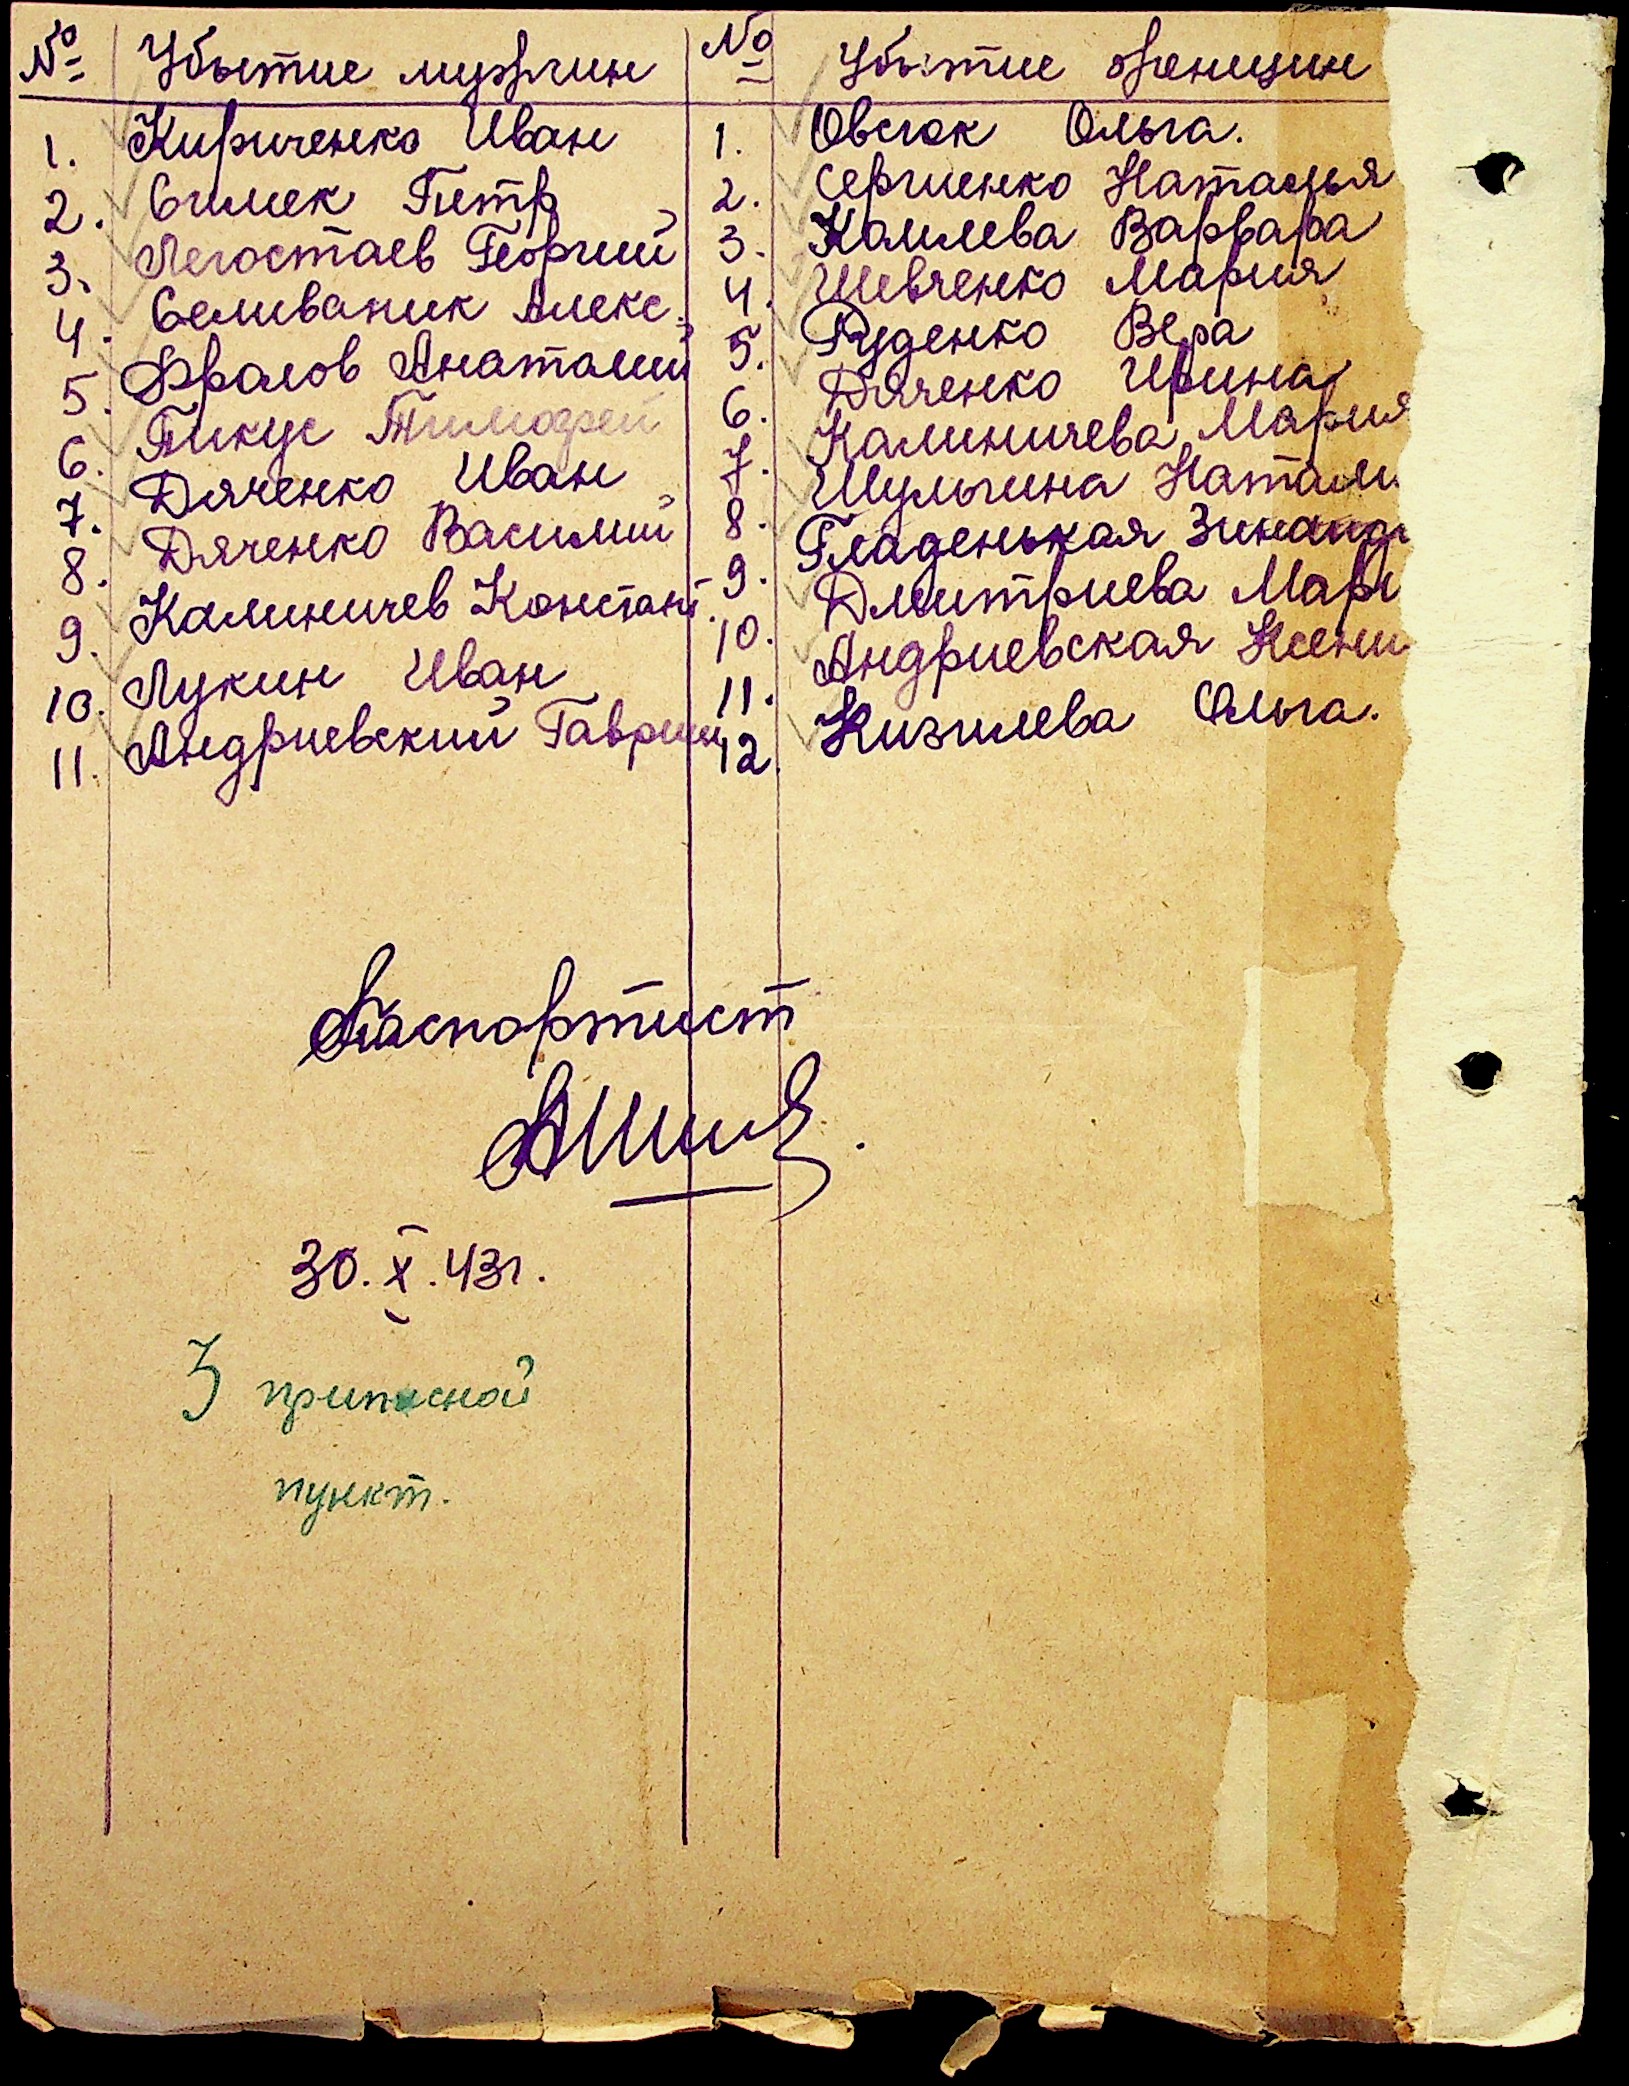 № Убытие мужчин № Убытие женщин
1. Кириченко Иван 1. Овсюк Ольга.
2. Симек Петр 2. Сергиенко Наталья
3. Легостаев Георгий 3. Комлева Варвара
4. Селиваник Алекс. 4. Шевченко Мария
5. Фролов Анатолий 5. Руденко Вера
6. Пикус Тимофей 6. Дяченко Ирина
7. Дяченко Иван 7. Калиничева Мария
8. Дяченко Василий 8. Шульгина Натали
9. Калиничев Констант. 9. Гладенькая Зинаид
10. Лукин Иван 10. Дмитриева Мари
11. Андриевский Гаврии 11. Андриевская Ксени
12. Кизилева Ольга.
Паспортист
30.X.43г.
3 приписной
пункт.